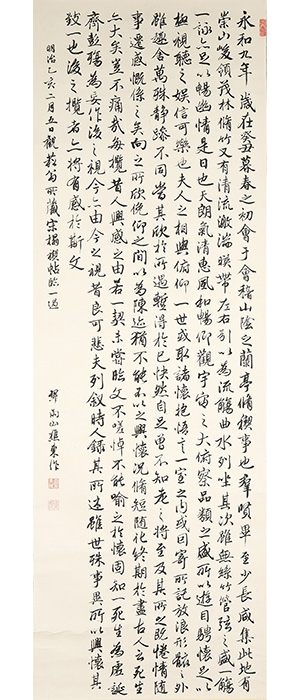 永和九年歲在癸丑暮春之初會于會稽山陰之蘭亭脩禊事也群賢畢至少長咸集此地有
崇山峻領茂林脩竹又有清流激湍暎帶左右引以為流觴曲水列坐其次雖無絲竹管弦之盛一觴
一詠亦足以暢幽情是日也天朗氣清惠風和暢仰觀宇宙之大俯察品類之盛所以遊目騁懷足以
極視聽之娛信可樂也夫人之相與俯仰一世或取諸懷抱悟言一室之内或因寄所託放浪形骸之外
雖趣舍萬殊靜躁不同當其欣於所遇暫得於己快然自足曾不知老之將至及其所之既惓情隨
事遷感慨係之矣向之所欣俛仰之間以為陳迹猶不能不以之興懷況脩短隨化終期於盡古人云死生
亦大矣豈不痛哉每攬昔人興感之由若一契未嘗臨文不嗟悼不能喻之於懷固知一死生為虛誕
齊彭殤為妄作後之視今亦由今之視昔良可悲夫列敘時人錄其所述雖世殊事異所以興懷其
致一也後之攬者亦將有感於斯文
明治乙亥二月五日觀菘翁所藏宋搨禊帖臨一過